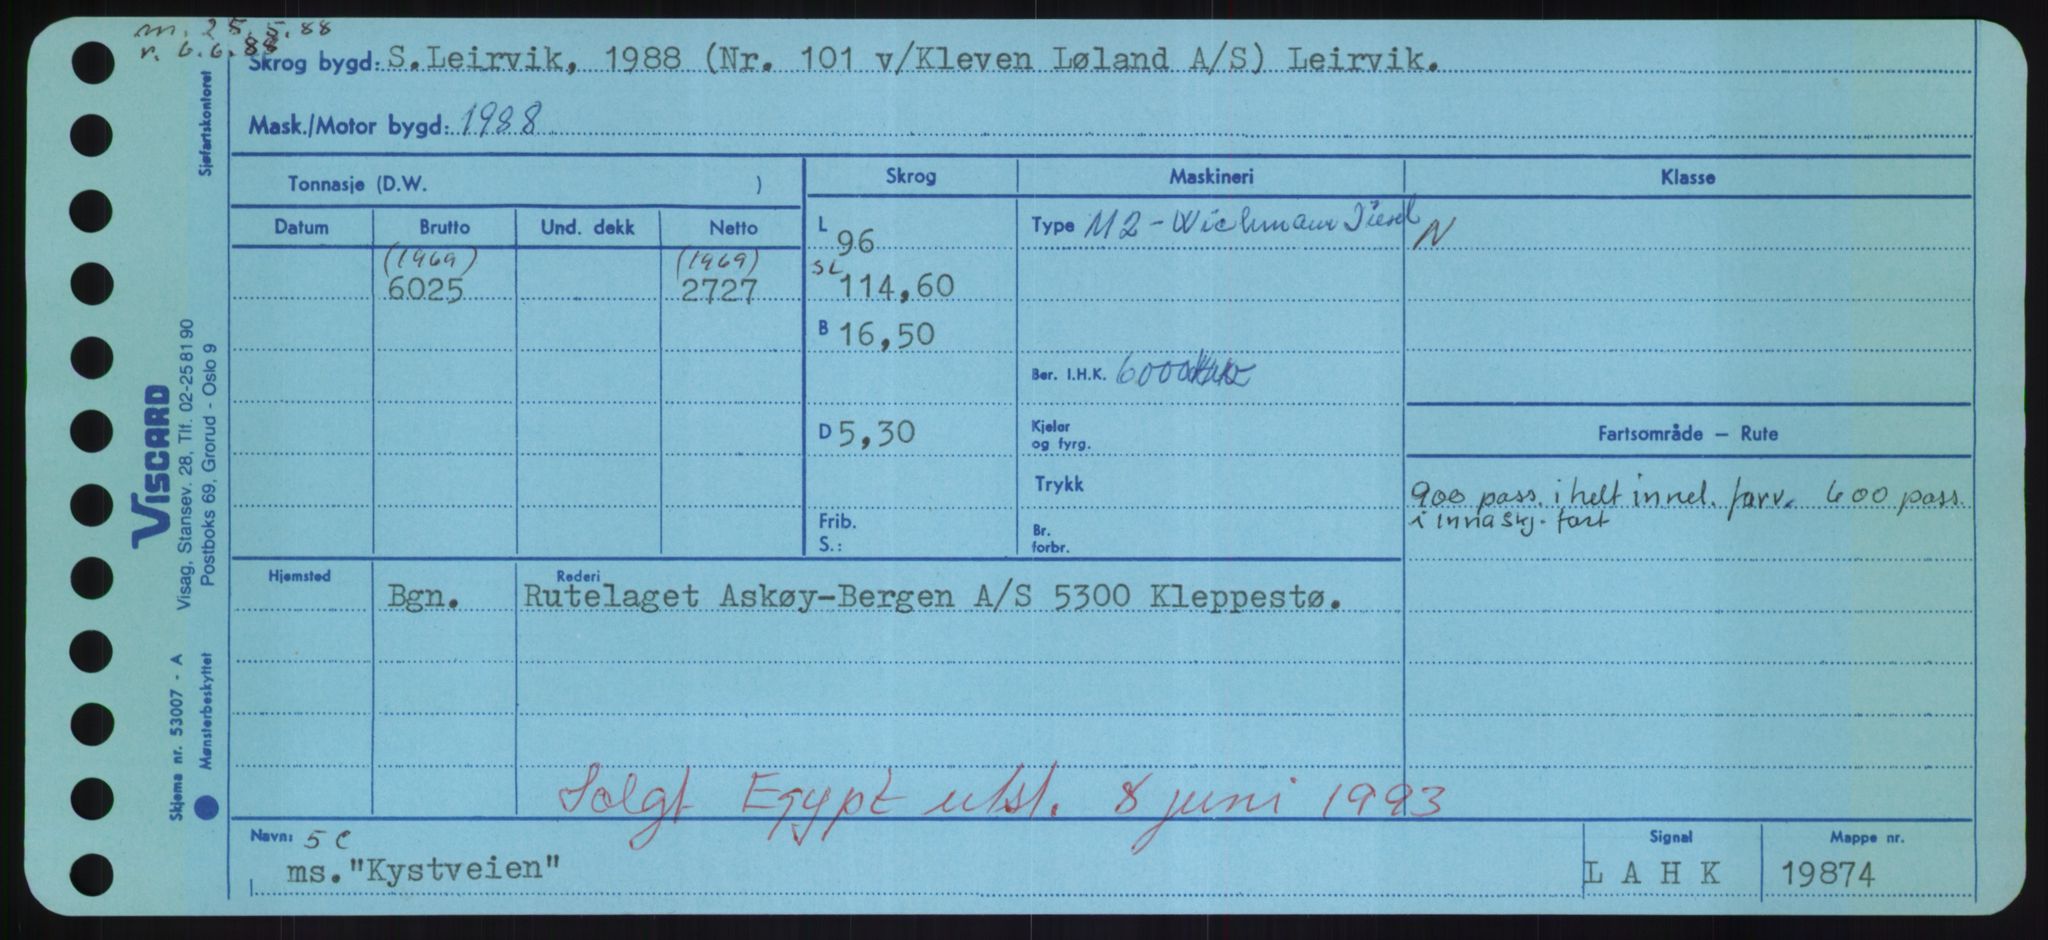 m. 25.5.88
r. 6.6.88
Skrog bygd: S.Leirvik, 1988 (Nr. 101 v/Kleven Løland A/S) Leirvik.
Mask./Motor bygd: 1988
Sjøfartskontoret
Tonnasje (D.W. )
Skrog Maskineri Klasse
Datum Brutto Und. dekk Netto
L 96
Type M2 - Wichmann Diesel N
(1969) (1969)
6025 2727
SL 114,60
B 16,50
Ber. I.H.K. 6000
D 5,30
Kjeler
og fyrg.
Trykk
Frib.
S.:
Br.
forbr.
Fartsområde – Rute
900 pass. i helt innel. farv. 600 pass.
i innaskj. fart
Hjemsted Rederi
Bgn. Rutelaget Askøy-Bergen A/S 5300 Kleppestø.
Solgt Egypt utst. 8 juni 1993
Navn: 5 C
ms."Kystveien"
Signal
L A H K
Mappe nr.
19874
VISCARD
Visag, Stansev. 28, Tlf. 02-25 81 90
Postboks 69, Grorud - Oslo 9
Skjema nr. 53007 - A
Mønsterbeskyttet